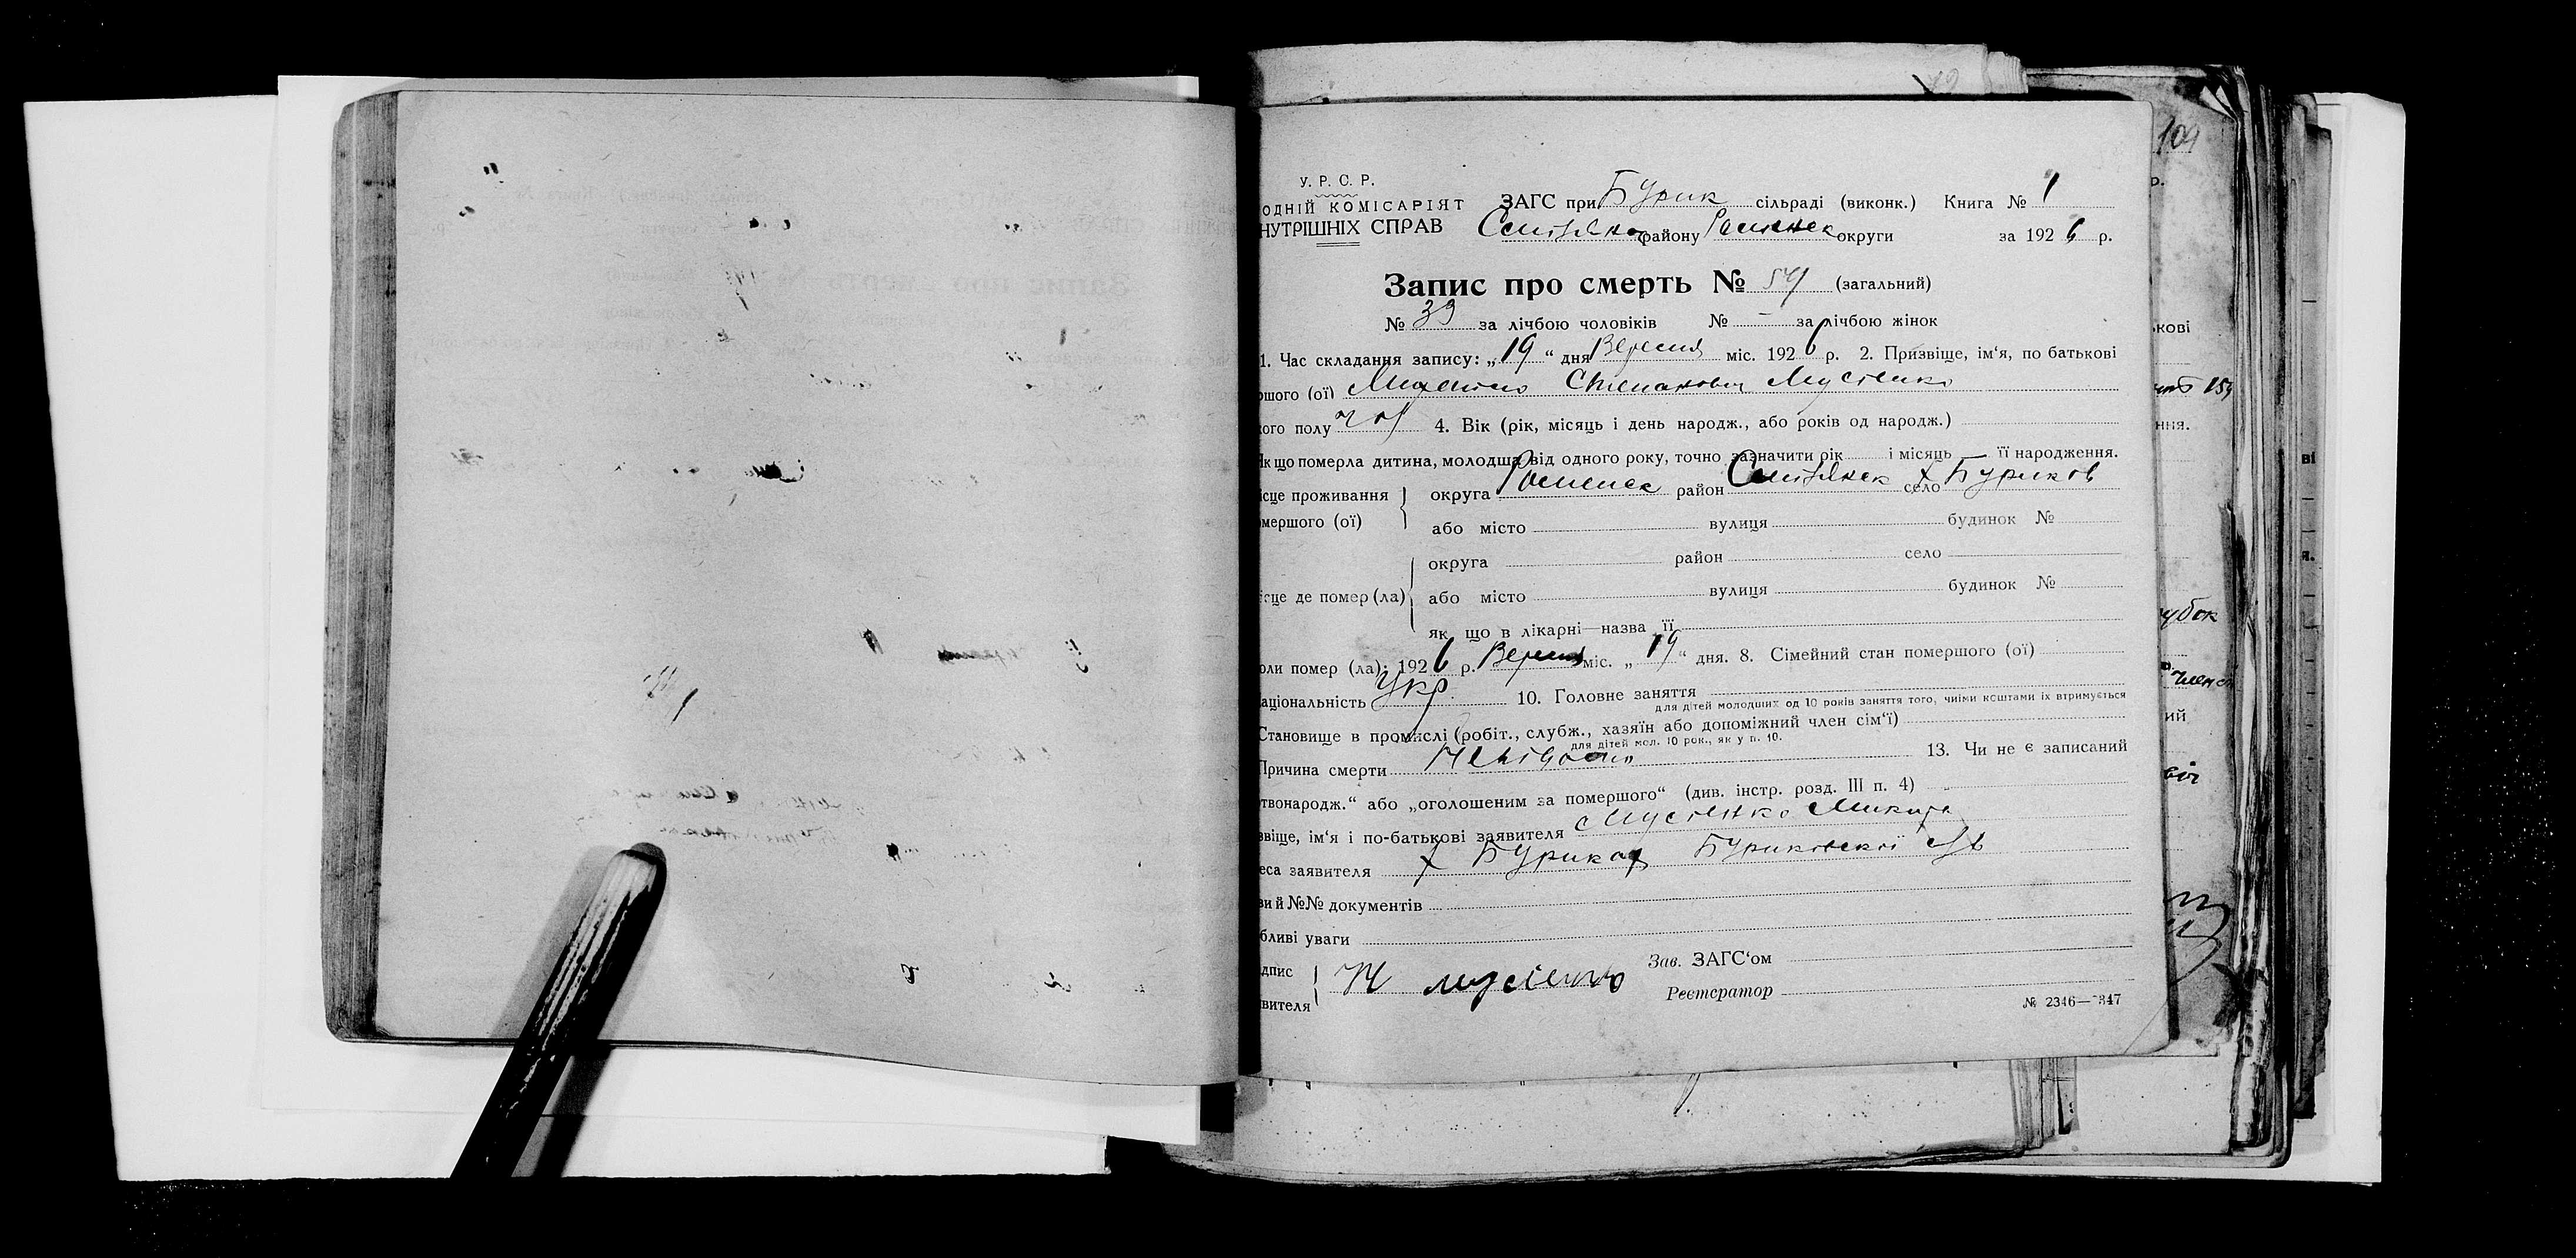 104
У. Р. С. Р.
ОДНІЙ КОМІСАРІЯТ ЗАГС при Бурик сільраді (виконк.) Книга № 1
НУТРІШНІХ СПРАВ району Роменск округи за 1926 р.
Запис про смерть № 54 (загальний)
№ 39 за лічбою чоловіків № – за лічбою жінок
1. Час складання запису: „19“ дня Вересня міс. 1926 р. 2. Призвіще, ім‘я, по батькові
ршого (ої) Степанович Мусієнко
кого полу чол 4. Вік (рік, місяць і день народж., або років од народж.)
Як що померла дитина, молодша від одного року, точно зазначити рік і місяць її народження.
ісце проживання округа Роменск район село х Буриков
омершого (ої) або місто вулиця будинок №
округа район село
ісце де помер (ла) або місто вулиця будинок №
як що в лікарні—назва її
оли помер (ла): 1926 р. Вересня міс. „19“ дня. 8. Сімейний стан помершого (ої)
аціональність Укр. 10. Головне заняття
для дітей молодших од 10 років заняття того, чиїми коштами їх втримується
Становище в промислі (робіт., служб., хазяїн або допоміжний член сім‘ї)
для дітей мол. 10 рок., як у п. 10.
Причина смерти 13. Чи не є записаний
твонародж.“ або „оголошеним за помершого“ (див. інстр. розд. III п. 4)
звіще, ім‘я і по-батькові заявителя Мусієнко Микита
еса заявителя х Бурика Буриковскої с/р
ви й №№ документів
бливі уваги
дпис Зав. ЗАГС‘ом
вителя М мусієнко Реєстратор
№ 2346—347